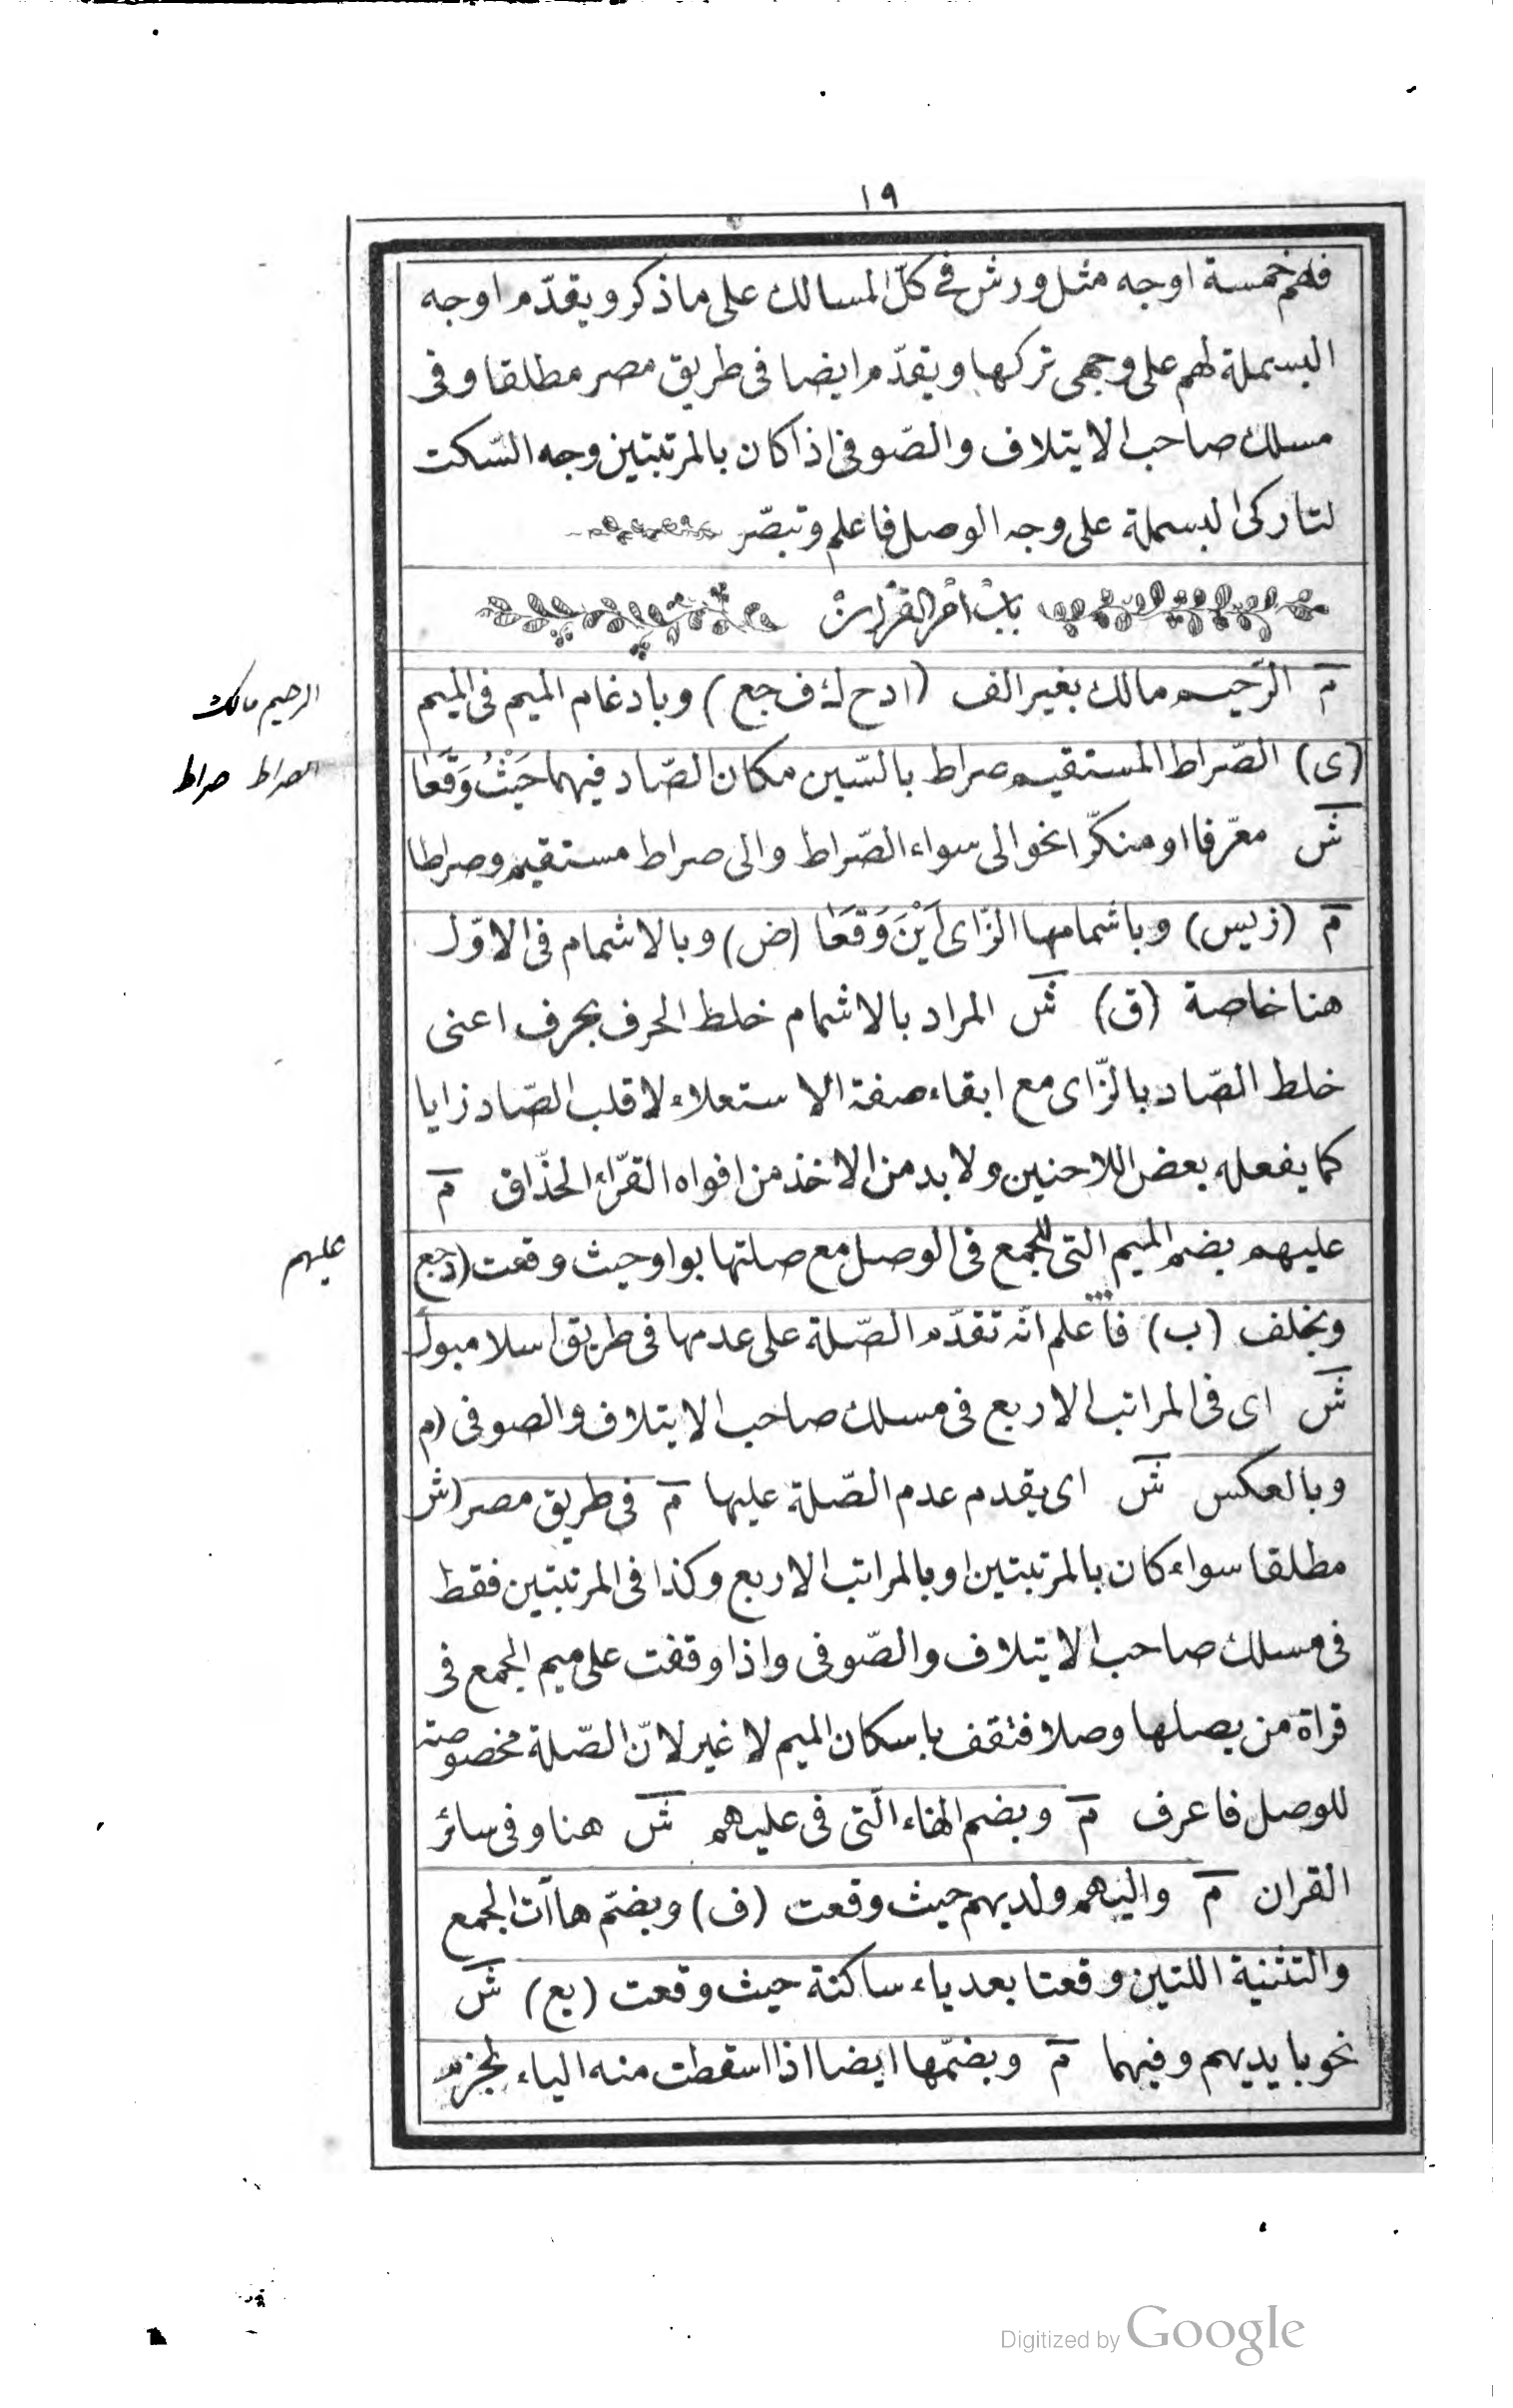 ١٩
فلهم خمسة اوجه مثل ورش فى كلّ المسالك على ما ذكر ويقدّم اوجه
البسملة لهم على وجهى تركها ويقدّم ايضا فى طريق مصر مطلقا وفى
مسلك صاحب الايتلاف والصّوفى اذا كان بالمرتبتين وجه السّكت
لتاركى البسملة على وجه الوصل فاعلم وتبصّر
باب امّ القرآن
م الرّحيم مالك بغير الف (ا د ح ك ف جع) وبادغام الميم فى الميم
الرحيم مالك
(ى) الصّراط المستقيم صراط بالسّين مكان الصّاد فيهما حَيْثُ وَقَعَا
الصراط صراط
ش معرّفا او منكّرا نحو الى سواء الصّراط والى صراط مستقيم وصراطا
م (زيس) وباشمامها الزّاى اَيْنَ وَقَعَا (ض) وبالاشمام فى الاوّل
هنا خاصة (ق) ش المراد بالاشمام خلط الحرف بحرف اعنى
خلط الصّاد بالزّاى مع ابقاء صفة الاستعلاء لا قلب الصّاد زايا
كما يفعله بعض اللاحنين ولا بد من الاخذ من افواه القرّاء الحذّاق م
عليهم بضم الميم التى للجمع فى الوصل مع صلتها بواو حيث وقعت (د جع)
عليهم
وبخلف (ب) فاعلم انّه تقدّم الصّلة على عدمها فى طريق اسلامبول
ش اى فى المراتب الاربع فى مسلك صاحب الايتلاف والصوفى (م
وبالعكس ش اى يقدم عدم الصّلة عليها م فى طريق مصر (ش
مطلقا سواء كان بالمرتبتين او بالمراتب الاربع وكذا فى المرتبتين فقط
فى مسلك صاحب الايتلاف والصّوفى واذا وقفت على ميم الجمع فى
قراة من يصلها وصلا فتقف باسكان الميم لا غير لانّ الصّلة مخصوصة
للوصل فاعرف م وبضم الهاء الّتى فى عليهم ش هنا وفى سائر
القران م واليهم ولديهم حيث وقعت (ف) وبضمّ هاآت الجمع
والتثنية اللتين وقعتا بعد ياء ساكنة حيث وقعت (يع) ش
نحو بايديهم وفيهما م وبضمّها ايضا اذا اسقطت منه الياء لجزم
Digitized by Google